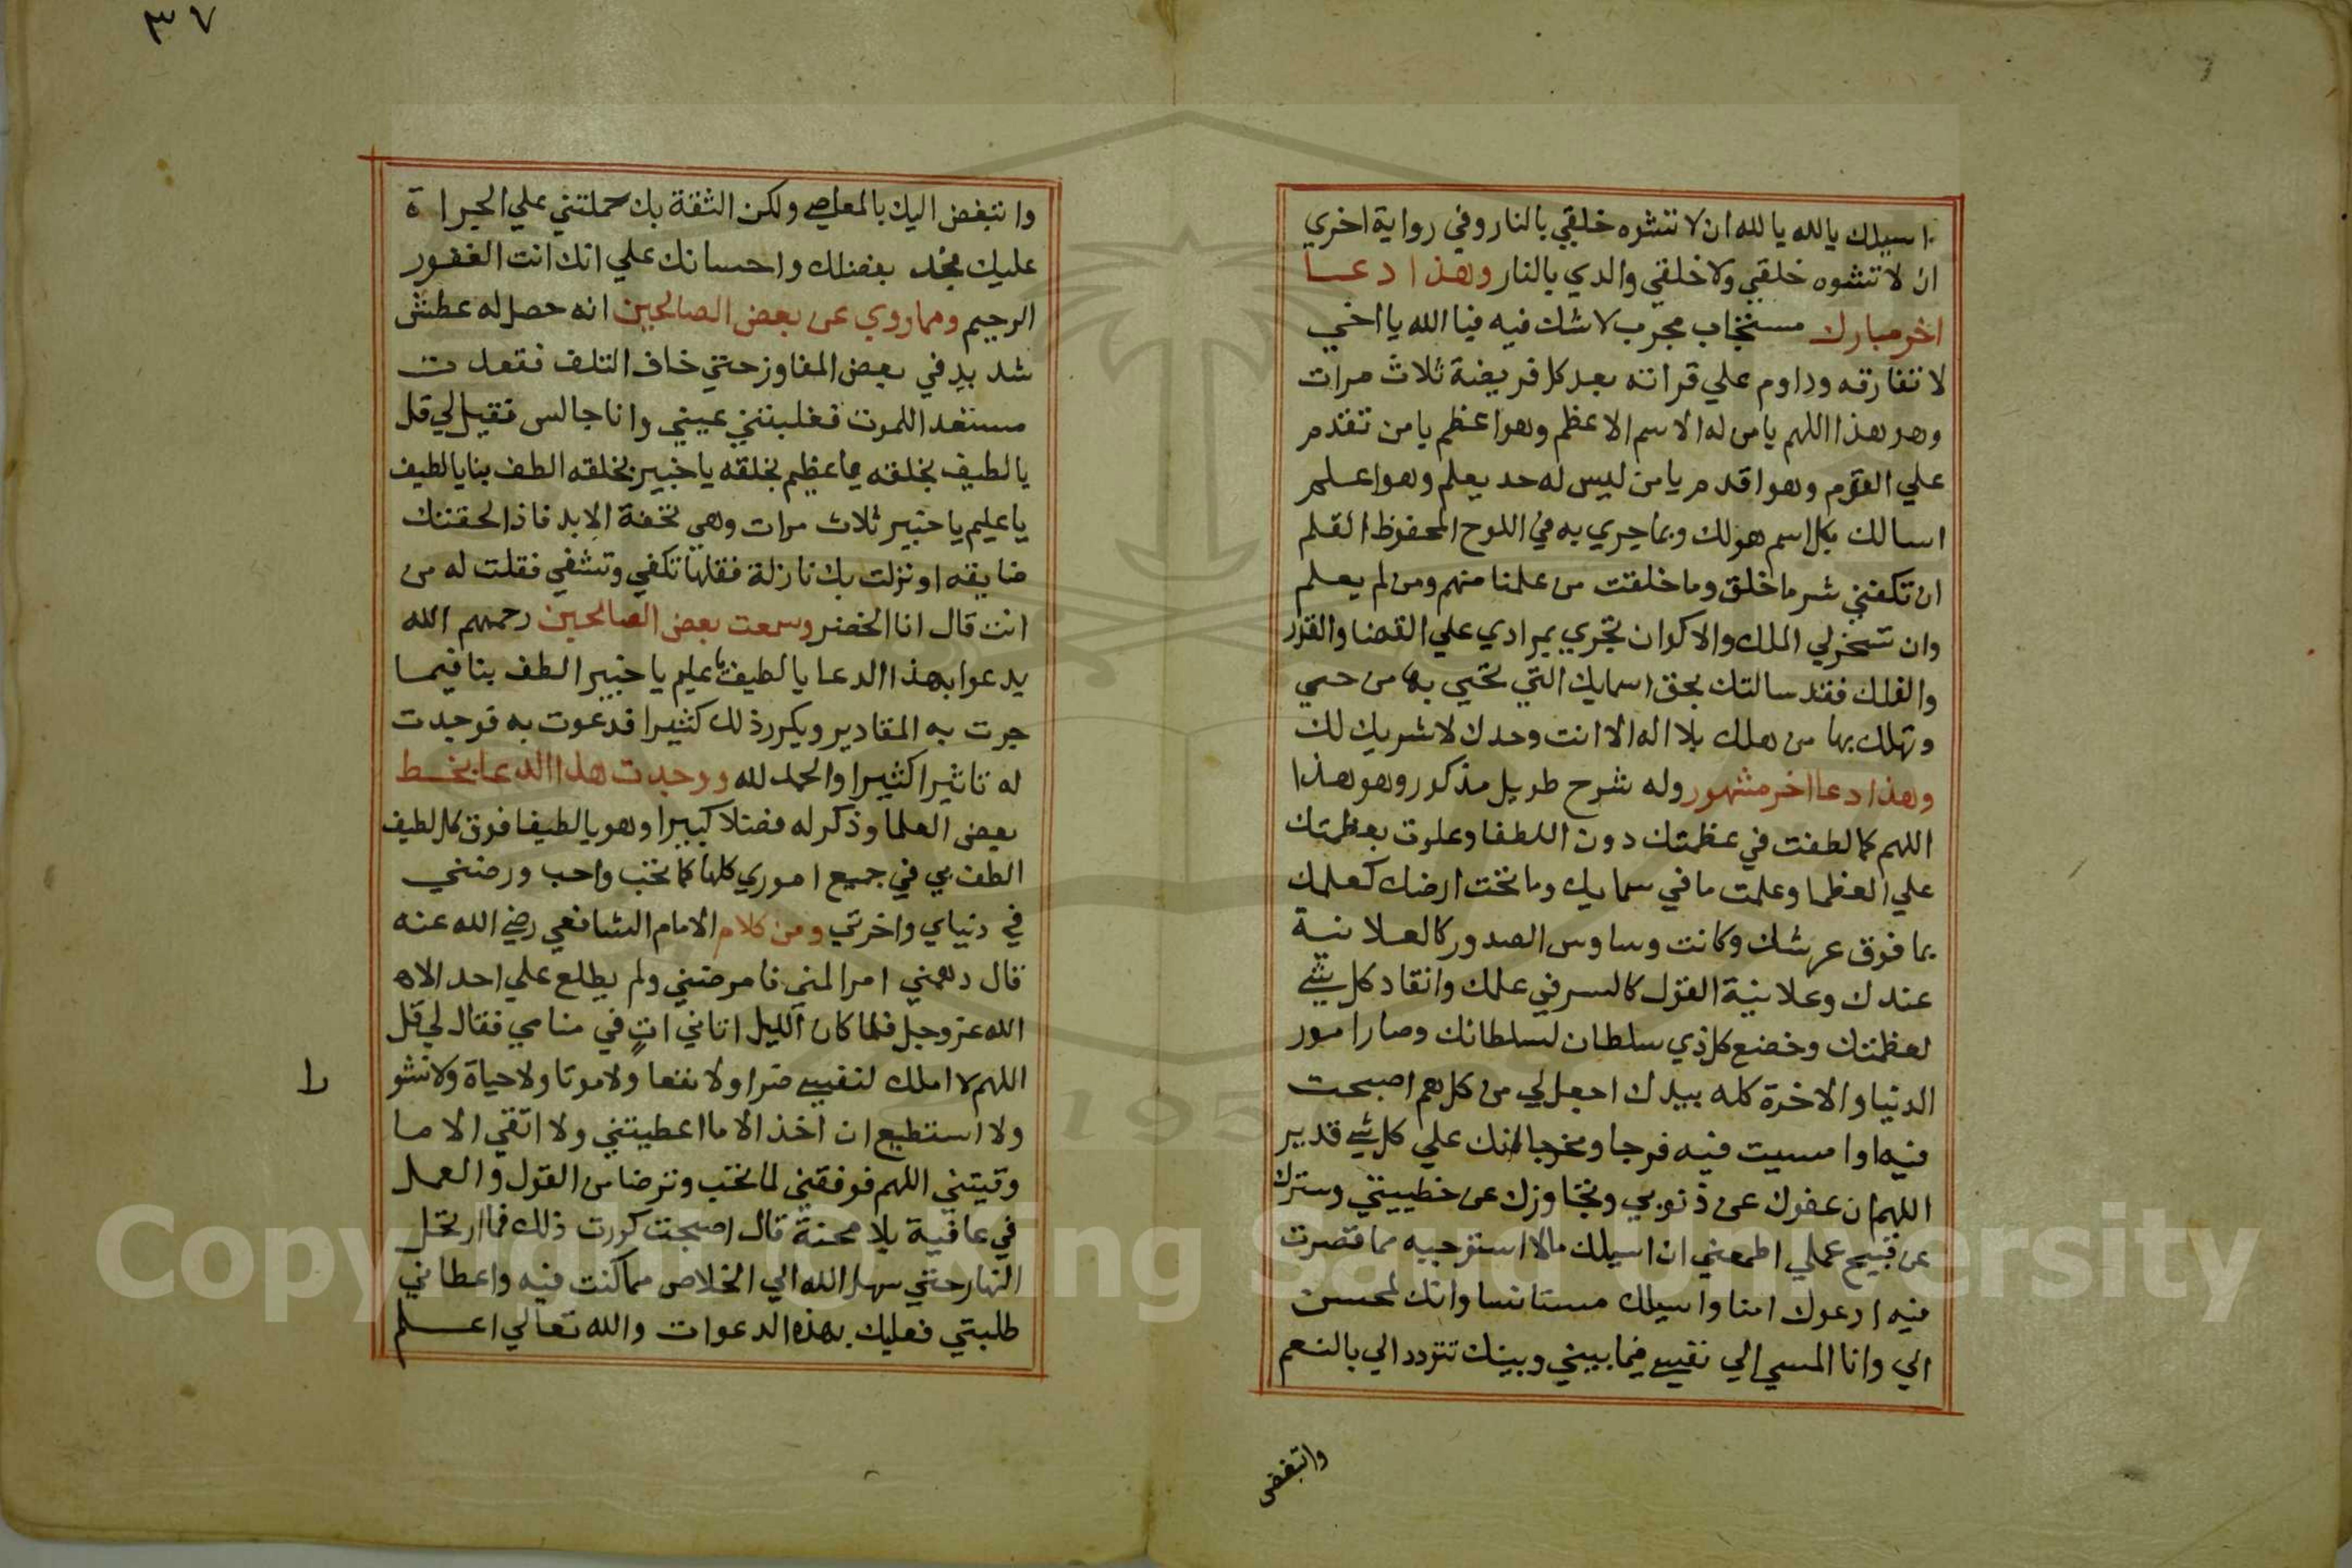 اسيلك يالله يالله ان لا تشوه خلقي بالنار وفي رواية اخري
ان لا تشوه خلقي ولا خلقي والدي بالنار وهذا دعا
اخر مبارك مستخاب مجرب لا شك فيه فيا الله يا اخي
لا تفارقه وداوم علي قراته بعد كل فريضة ثلاث مرات
وهو هذا اللهم يا من له الاسم الاعظم وهو اعظم يا من تقدم
علي القوم وهو اقدم يا من ليس له حد يعلم وهو اعلم
اسالك بكل اسم هو لك وبما جري به في اللوح المحفوظ القلم
ان تكفني شر ما خلق وما خلقت من علمنا منهم ومن لم يعلم
وان تسخر لي الملك والاكوان تجري بمرادي علي القضا والقدر
والفلك فقد سالتك بحق اسمايك التي تحيي بها من حيي
وتهلك بها من هلك بلا اله الا انت وحدك لا شريك لك
وهذا دعا اخر مشهور وله شرح طويل مذكور وهو هذا
اللهم كما لطفت في عظمتك دون اللطفا وعلوت بعظمتك
علي العظما وعلمت ما في سمايك وما تحت ارضك كعلمك
بما فوق عرشك وكانت وساوس الصدور كالعلانية
عندك وعلانية القول كالسر في علمك وانقاد كل شي
لعظمتك وخضع كل ذي سلطان لسلطانك وصار امور
الدنيا والاخرة كله بيدك اجعل لي من كل هم اصبحت
فيه او امسيت فيه فرجا ومخرجا انك علي كل شي قدير
اللهم ان عفوك عن ذنوبي وتجاوزك عن خطييتي وسترك
عن قبيح عملي اطمعني ان اسيلك ما لا استوجبه مما قصرت
فيه ادعوك امنا واسيلك مستانسا وانك لمحسن
الي وانا المسي الي نفسي فيما بيني وبينك تتودد الي بالنعم
واتبغض
٣٧
وانتبغض اليك بالمعاصي ولكن الثقة بك حملتني علي الجراة
عليك فجد بفضلك واحسانك علي انك انت الغفور
الرحيم ومما روي عن بعض الصالحين انه حصل له عطش
شديد في بعض المفاوز حتي خاف التلف فقعدت
مستعدا للموت فغلبتني عيني وانا جالس فقيل لي قل
يا لطيف بخلقه يا عظيم بخلقه يا خبير بخلقه الطف بنا يا لطيف
يا عليم يا خبير ثلاث مرات وهي تحفة الابد فاذا لحقتك
ضايقه او نزلت بك نازلة فقلها تكفي وتشفي فقلت له من
انت قال انا الخضر وسمعت بعض الصالحين رحمهم الله
يدعوا بهذا الدعا يا لطيف يا عليم يا خبير الطف بنا فيما
جرت به المقادير ويكرر ذلك كثيرا فدعوت به فوجدت
له تاثيرا كثيرا والحمد لله ووجدت هذا الدعا بخط
بعض العلما وذكر له فضلا كبيرا وهو يا لطيفا فوق كل لطيف
الطف بي في جميع اموري كلها كما تحب واحب ورضني
في دنياي واخرتي ومن كلام الامام الشافعي رضي الله عنه
قال دهمني امرا لمني فامرضني ولم يطلع علي احد الاه
الله عز وجل فلما كان الليل اتاني ات في منامي فقال لي قل
اللهم لا املك لنفسي ضرا ولا نفعا ولا موتا ولا حياة ولا نشو
را
ولا استطيع ان اخذ الا ما اعطيتني ولا اتقي الا ما
وقيتني اللهم فوفقني لما تحب وترضا من القول والعمل
في عافية بلا محنة قال اصبحت كررت ذلك فما ارتحل
النهار حتي سهل الله الي الخلاص مما كنت فيه واعطاني
طلبتي فعليك بهذه الدعوات والله تعالي اعلم
Copyright © King Saud University
195